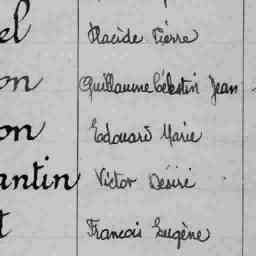 el Placide Pierre
on Guillaume Célestin Jean
on Edouard Marie
antin Victor Désiré
t François Eugène